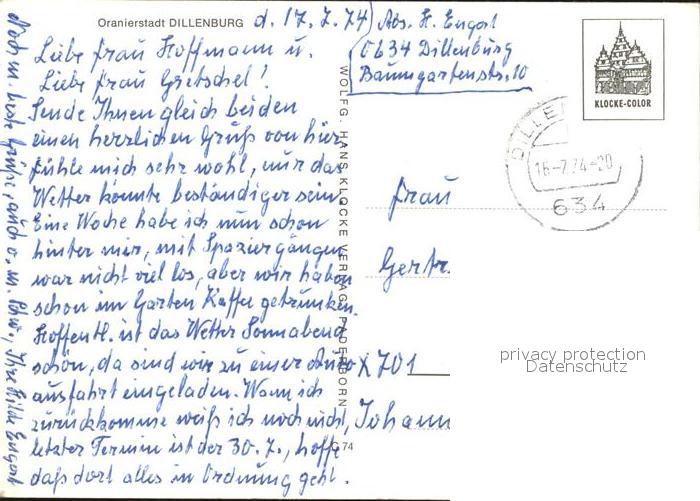 Oranierstadt DILLENBURG
d. 17.7.74
Abs. H. Engort
0634 Dillenburg
Baumgartenstr. 10
Liebe Frau Hoffmann u.
Liebe Frau Gretschel!
Sende Ihnen gleich beiden
einen herrlichen Gruß von hier
fühle mich sehr wohl, nur das
Wetter könnte beständiger sein
Eine Woche habe ich nun schon
hinter mir, mit Spaziergängen
war nicht viel los, aber wir haben
schon im Garten Kaffee getrunken.
Hoffentl. ist das Wetter Sonnabend
schön, da sind wir zu einer Auto
ausfahrt eingeladen. Wann ich
zurückkomme weiß ich noch nicht,
letzter Termin ist der 30.7., hoffe
daß dort alles in Ordnung geht.
Noch m. beste Grüße, auch v. m. Schw., Ihre Hilde Engort
WOLFG. HANS KLOCKE VERLAG PADERBORN
74
KLOCKE-COLOR
DILLE
16.-7.74-20
634
Frau
Gertr.
X 701
Johann
privacy protection
Datenschutz